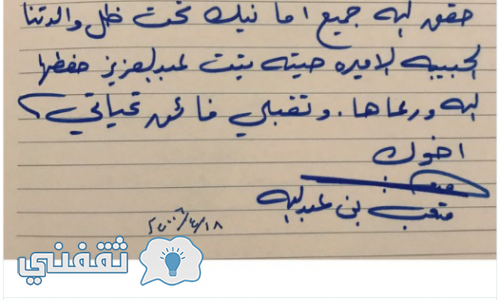 حقق الله جميع امانيك تحت ظل والدتنا
الحبيبه الاميره حيته بنت عبدالعزيز حفظها
الله ورعاها. وتقبلي فائق تحياتي،
اخوك
متعب بن عبدالله
١٨/٤/٢٠٠٦
ثقفني